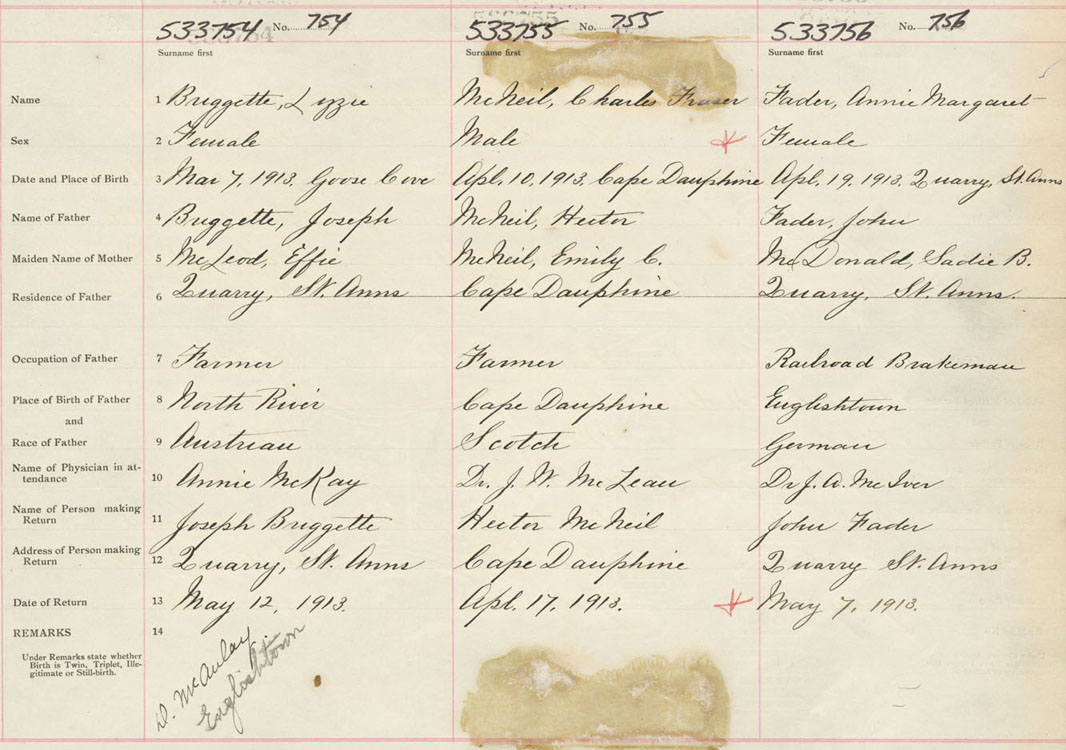 533754 No. 754 533755 No. 755 533756 No. 756
Surname first Surname first Surname first
Name 1 Bruggette, Lizzie McNeil, Charles Fraser Fader, Annie Margaret
Sex 2 Female Male Female
Date and Place of Birth 3 Mar 7, 1913, Goose Cove Apl. 10, 1913, Cape Dauphine Apl. 19, 1913, Quarry, St. Anns
Name of Father 4 Bruggette, Joseph McNeil, Hector Fader, John
Maiden Name of Mother 5 McLeod, Effie McNeil, Emily C. McDonald, Sadie B.
Residence of Father 6 Quarry, St. Anns Cape Dauphine Quarry, St. Anns.
Occupation of Father 7 Farmer Farmer Railroad Brakeman
Place of Birth of Father 8 North River Cape Dauphine Englishtown
and
Race of Father 9 Austrian Scotch German
Name of Physician in at-
tendance 10 Annie McKay Dr. J. W. McLean Dr J. A. McIver
Name of Person making
Return 11 Joseph Bruggette Hector McNeil John Fader
Address of Person making
Return 12 Quarry, St. Anns Cape Dauphine Quarry St. Anns
Date of Return 13 May 12, 1913. Apl. 17, 1913. May 7, 1913.
REMARKS 14
Under Remarks state whether
Birth is Twin, Triplet, Ille-
gitimate or Still-birth.
D. McAulay
Englishtown